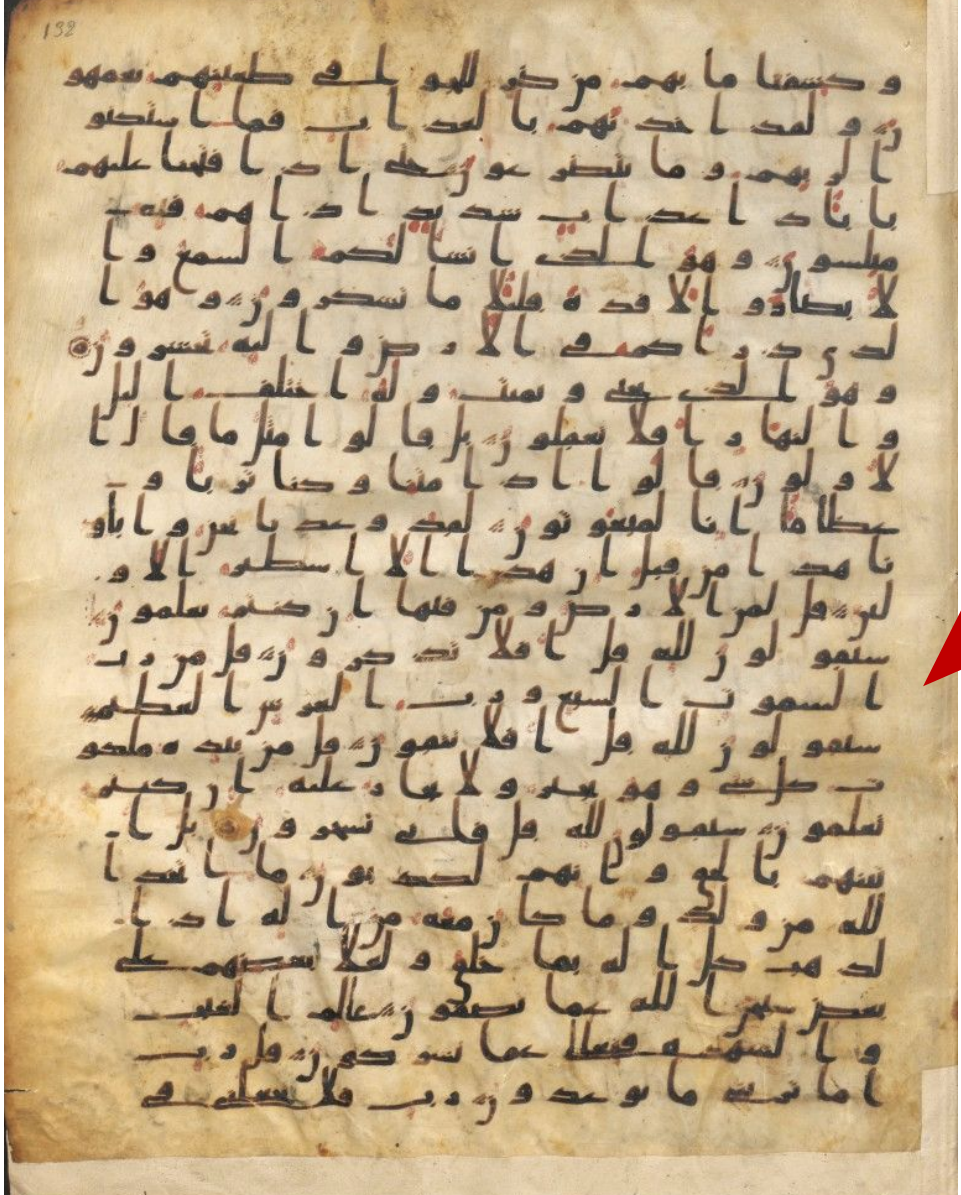 132
وكشفنا ما بهم من ضر للجوا في طغينهم يعمهو
ن ولقد اخذنهم بالعذاب فما استكنو
ا لربهم وما يتضرعون حتى اذا فتحنا عليهم
بابا ذا عذاب شديد اذا هم فيه
مبلسون وهو الذي انشا لكم السمع وا
لابصار والافدة قليلا ما تشكرون وهو ا
لذي ذراكم في الارض واليه تحشرون
وهو الذي يحي ويميت وله اختلف اليل
والنهار افلا تعقلون بل قالوا مثل ما قال ا
لاولون قالوا ااذا متنا وكنا ترابا و
عظاما انا لمبعوثون لقد وعدنا نحن واباو
نا هذا من قبل ان هذا الا اسطير الاو
لين قل لمن الارض ومن فيها ان كنتم تعلمون
سيقولون لله قل افلا تذكرون قل من رب
السموت السبع ورب العرش العظيم
سيقولون لله قل افلا تتقون قل من بيده ملكو
ت كل شي وهو يجير ولا يجار عليه ان كنتم
تعلمون سيقولون لله قل فانى تسحرون بل ا
تينهم بالحق وانهم لكذبون ما اتخذ ا
لله من ولد وما كان معه من اله اذا
لذهب كل اله بما خلق ولعلا بعضهم على
بعض سبحن الله عما يصفون عالم الغيب
والشهدة فتعلى عما يشركون قل رب
اما تريني ما يوعدون رب فلا تجعلني في